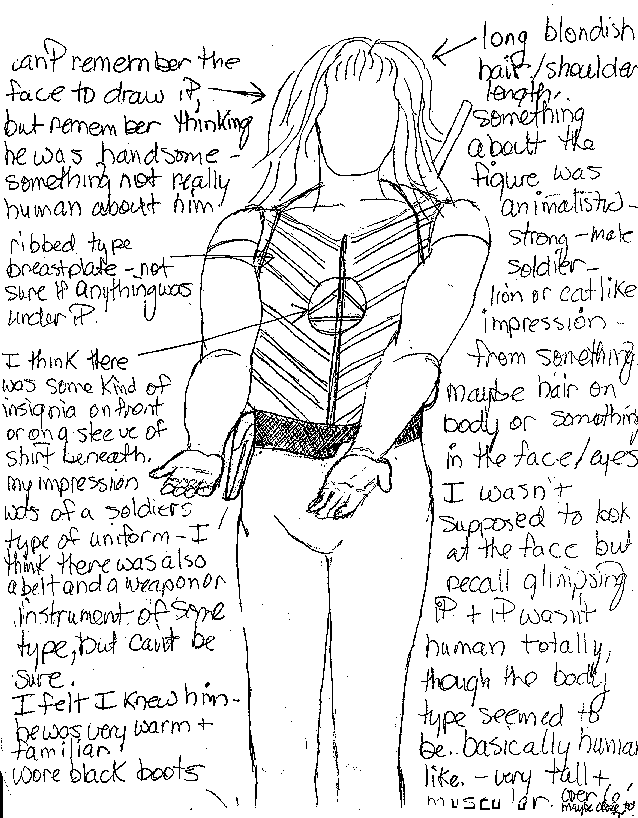 can't remember the
face to draw it,
but remember thinking
he was handsome -
something not really
human about him
ribbed type
breastplate - not
sure if anything was
under it.
I think there
was some kind of
insignia on front
or on a sleeve of
shirt beneath.
my impression
was of a soldiers
type of uniform - I
think there was also
a belt and a weapon or
instrument of some
type, but can't be
sure.
I felt I knew him -
he was very warm +
familiar
wore black boots
long blondish
hair/shoulder
length.
something
about the
figure was
animalistic -
strong - male
soldier -
lion or catlike
impression -
from something.
maybe hair on
body or something
in the face/eyes
I wasn't
supposed to look
at the face but
recall glimpsing
it + it wasn't
human totally,
though the body
type seemed to
be basically human
like. - very tall +
muscular. over 6'
maybe close to